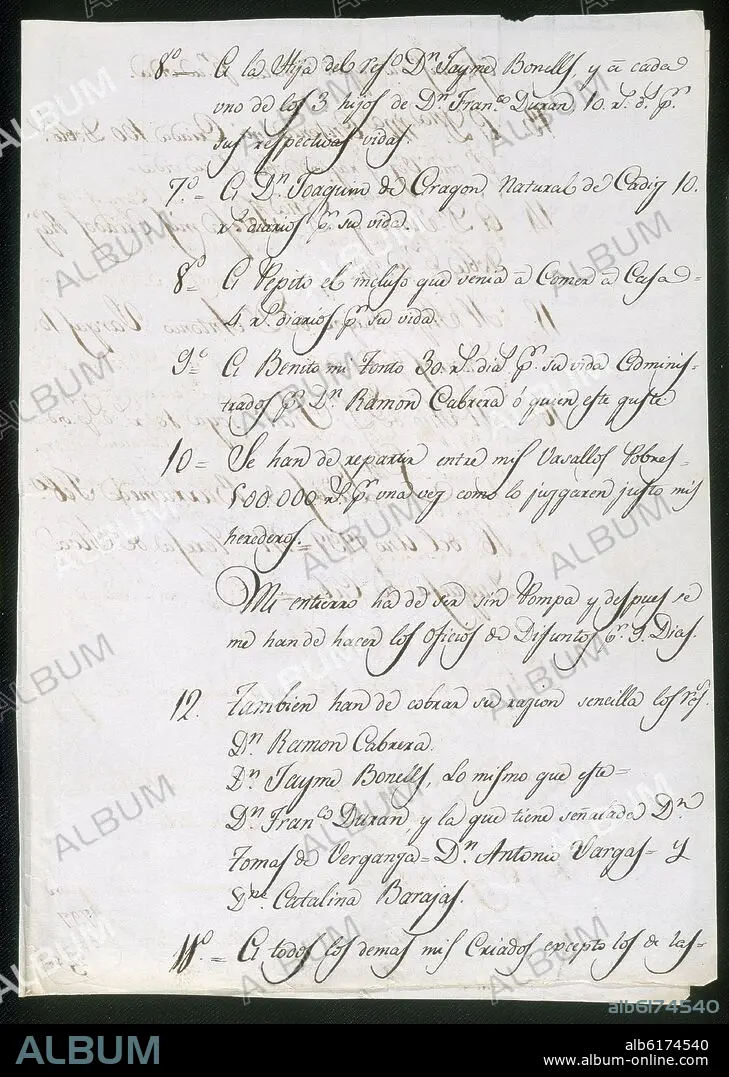 8º. A la Hija del refº. Dn. Jayme Bonells, y á cada
uno de los 3 hijos de Dn. Franco. Duran 10 rs. ds. pr.
sus respectivas vidas.
7.º = A Dn. Joaquin de Aragon Natural de Cadiz 10.
rs. diarios pr. su vida.
8º = A Pepito el incluso que venia á Comer á Casa =
4 rs. diarios pr. su vida.
9º = A Benito mi Tonto 30. rs. dias. pr. su vida Adminis-
trados pr. Dn. Ramon Cabrera ó quien este guste
10 = Se han de repartir entre mis Vasallos Pobres =
500.000 rs. pr. una vez como lo juzgaren justo mis
herederos.
Mi entierro ha de ser sin Pompa y despues se
me han de hacer los oficios de Difuntos pr. 9. Dias.
12. Tambien han de cobrar su razion sencilla los rs.
Dn. Ramon Cabrera.
Dn. Jayme Bonells, Lo mismo que este =
Dn. Franco. Duran y la que tiene señalada Dn.
Tomas de Verganza = Dn. Antonio Vargas = y
Dña. Catalina Barajas.
11º. = A todos los demas mis Criados excepto los de las =
ALBUM
alb6174540
ALBUM
alb6174540
www.album-online.com